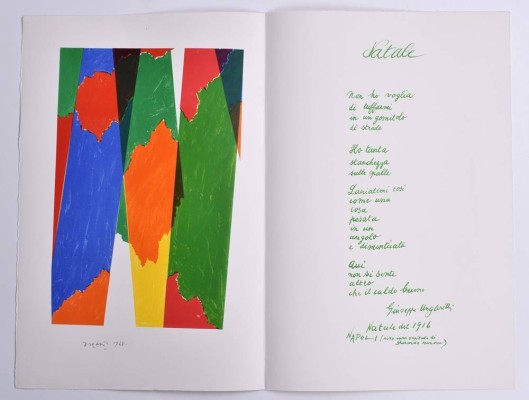 Natale
Non ho voglia
di tuffarmi
in un gomitolo
di strade
Ho tanta
stanchezza
sulle spalle
Lasciatemi così
come una
cosa
posata
in un
angolo
e dimenticata
Qui
non si sente
altro
che il caldo buono
Giuseppe Ungaretti
Natale del 1916
NAPOLI (nella casa ospitale di